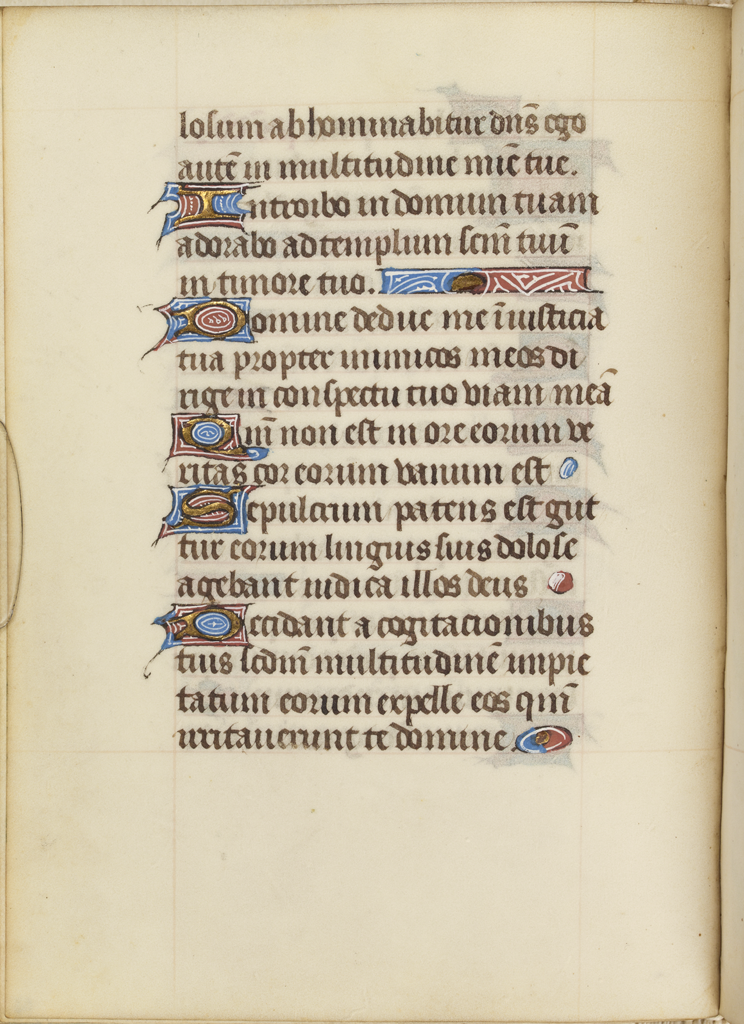 losum abhominabitur dn̄s ego
autē in multitudine mīe tue.
Introibo in domum tuam
adorabo ad templum scm̄ tuū
in timore tuo.
Domine deduc me ī iusticia
tua propter inimicos meos di
rige in conspectu tuo viam meā
Qm̄ non est in ore eorum ve
ritas cor eorum vanum est
Sepulcrum patens est gut
tur eorum linguis suis dolose
agebant iudica illos deus
Decidant a cogitacionibus
suis scdm̄ multitudinē impie
tatum eorum expelle eos qm̄
irritauerunt te domine